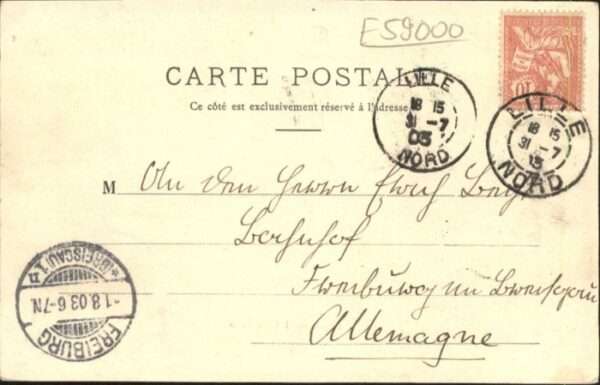 E59000
CARTE POSTALE
Ce côté est exclusivement réservé à l'adresse
LILLE
18 15
31 - 7
03
NORD
LILLE
18 15
31 - 7
03
NORD
10
M An den Herrn Erich
Bahnhof
Freiburg im Breisgau
Allemagne
FREIBURG
-1.8.03.6-7N.
* (BREISGAU) 1 *